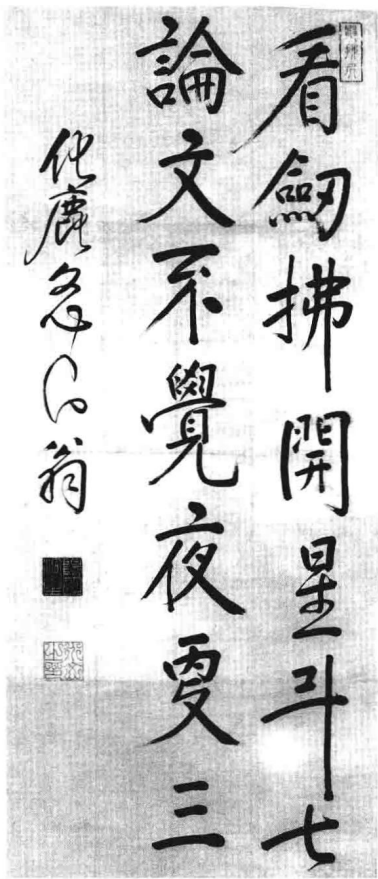 看劒拂開星斗七
論文不覺夜更三
化鹿
翁